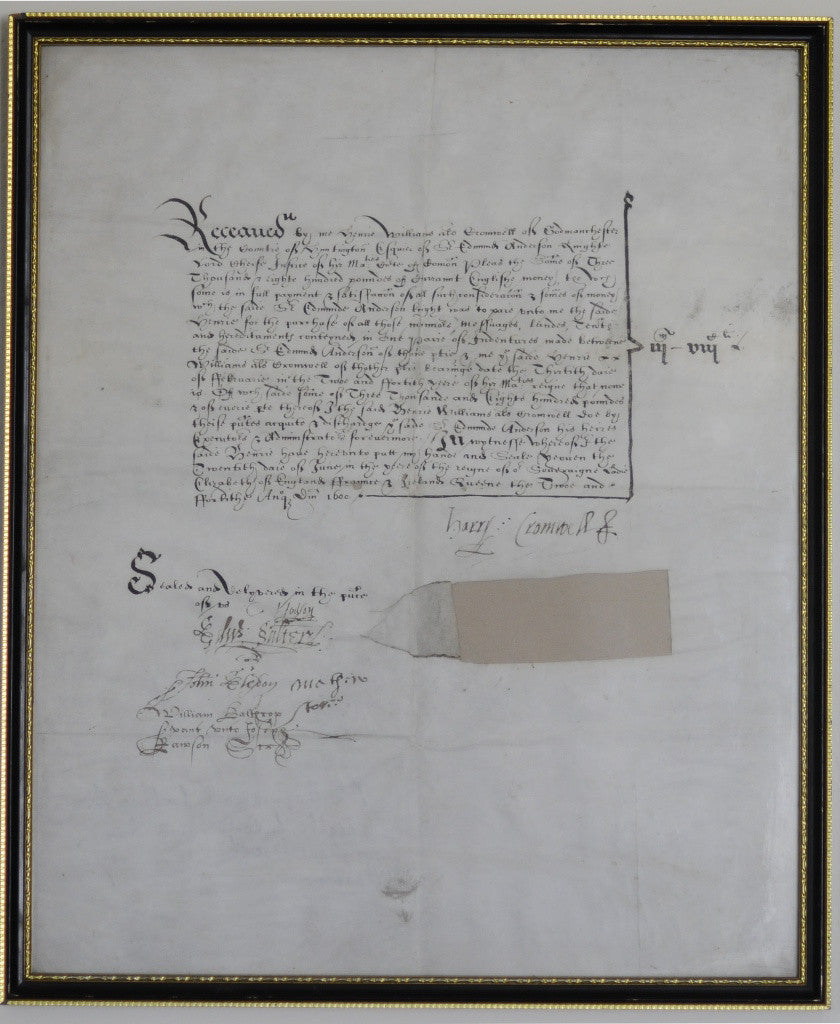 Receaued by me Henrie Williams als Cromwell of Godmanchester
in the Countie of Huntington Esquier of Sr Edmund Anderson Knighte
Lord Cheife Justice of her Mates Court of Comon Pleas the some of Three
Thousand & eighte hundred poundes of Currannt Englishe money, wch
some is in full payment & satisfaction of all such consideracon & somes of money
wch the saide Sr Edmunde Anderson ought was to paie vnto me the saide
Henrie for the purchase of all those mannors, Messuages, Landes, Tentes
and hereditaments conteyned in One Paire of Indentures made betweene
the saide Sr Edmund Anderson of thone ptie & me the saide Henrie
Williams als Cromwell of thother ptie bearinge date the Thirtith daie
of ffebruarie in the Twoe and ffortith yere of her Mates reigne that nowe
is Of wch saide some of Three Thousande and Eighte hundred poundes
& of euerie pte thereof I the said Henrie Williams als Cromwell doe by
theise pntes acquite & discharge the saide Sr Edmunde Anderson his heires
Executors & Administrators foreuermore. In wytnesse whereof I the
saide Henrie haue herevnto putt my hande and Seale yeouen the
Twentith daie of June in the yere of the reigne of or Soueraigne Lady
Elizabeth of England ffraunce & Ireland Queene the Twoe and
ffortithe Anoq Dni 1600
iijM - viijC li
Harry: Cromwell
Sealed and Delyvered in the pnce
of vs
Salter
John Mathew
William
servant vnto
Rawson